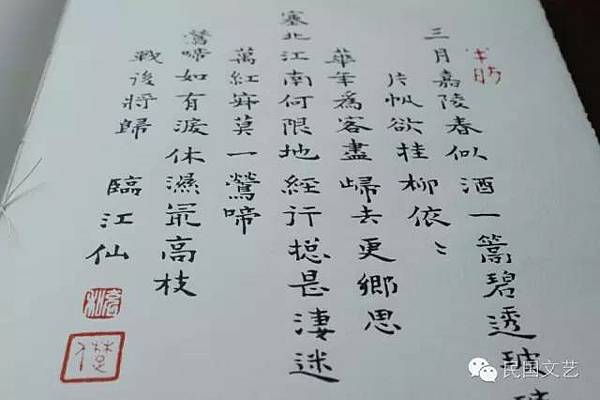 三月嘉陵春似酒一篙碧透玻
片帆欲挂柳依〻
華年為客盡歸去更鄉思
塞北江南何限地經行揔是淒迷
萬紅寂莫一鶯啼
鶯啼如有淚休濕最高枝
戰後將歸 臨江仙
民国文艺